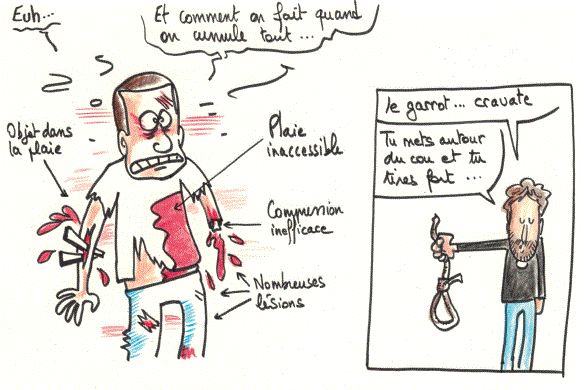 Euh...
Et comment on fait quand
on cumule tout ...
Objet dans
la plaie
Plaie
inaccessible
Compression
inefficace
Nombreuses
lésions
le garrot... cravate
Tu mets autour
du cou et tu
tires fort ...